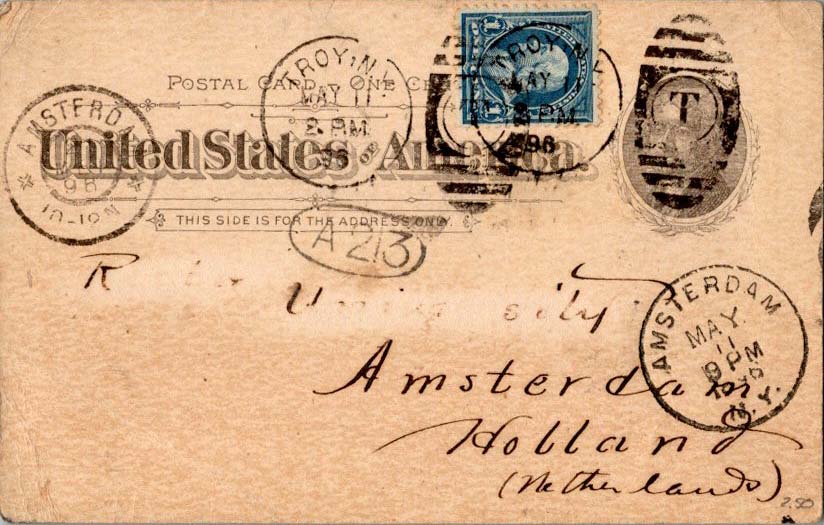 POSTAL CARD ONE CE
United States of America.
THIS SIDE IS FOR THE ADDRESS ONLY.
TROY, N.Y.
MAY 11
8 PM
96
TROY, N.Y.
MAY
8 PM
96
1
1
T
AMSTERD
96
10-12N
A 213
R
University
Amsterdam
Holland
(Netherlands)
AMSTERDAM
MAY.
11
9 PM
1896
N.Y.
2.50